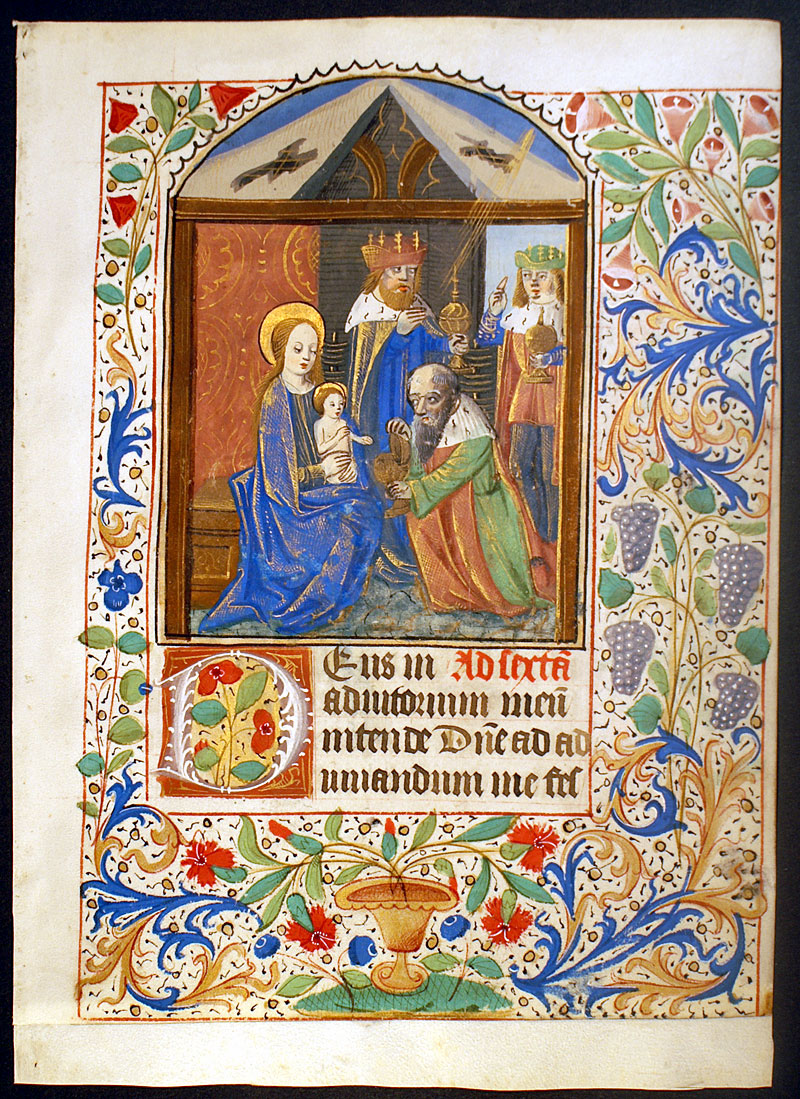 Deus in Ad sextā
adiutorium meū
intende Dñe ad ad
iuuandum me fes